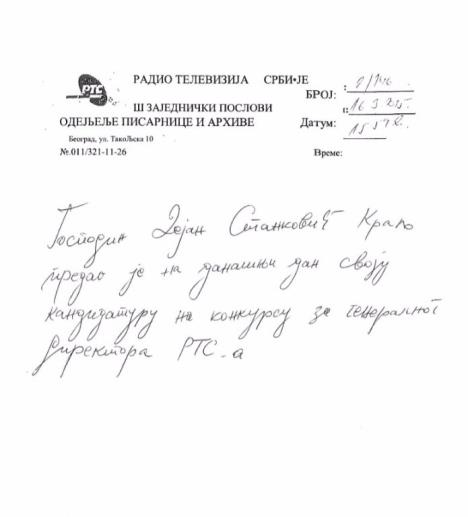 РТС
РАДИО ТЕЛЕВИЗИЈА СРБИ•ЈЕ
БРОЈ:
Ш ЗАЈЕДНИЧКИ ПОСЛОВИ
ОДЕЈЕЉЕ ПИСАРНИЦЕ И АРХИВЕ
Датум:
Београд, ул. ТакоЉска 10
№.011/321-11-26
Време:
Господин Дејан Станковић Краљ
предао је на данашњи дан своју
кандидатуру на конкурсу за генералног
директора РТС-а